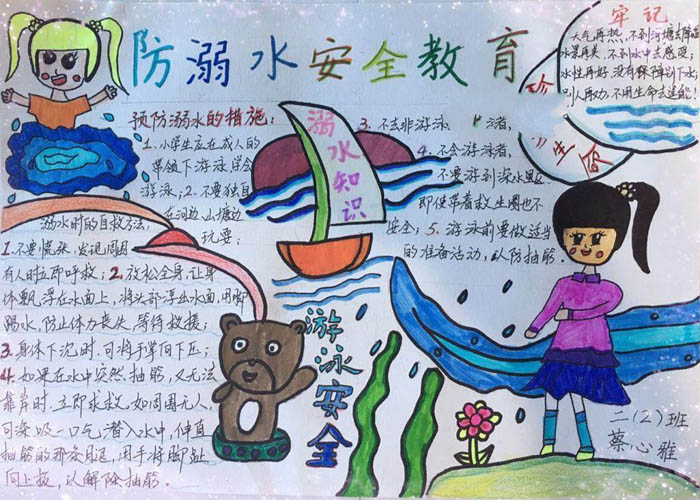 防溺水安全教育
牢记
天气再热,不到河塘去降温
水果再美,不到水中去感受;
水性再好,没有保障别下去;
别人再劝,不用生命去逞能!
珍
命
预防溺水的措施:
1.小学生应在成人的
带领下游泳学会
游泳;2.不要独自
在河边、山塘边
玩耍;
3.不去非游泳
4.不会游泳者,
不要游到深水区,
即使带着救生圈也不
安全;5.游泳前要做适当
的准备活动,以防抽筋。
溺水知识
溺水时的自救方法:
1.不要慌张,发现周围
有人时立即呼救;2.放松全身,让身
体飘浮在水面上,将头部浮出水面,用脚
踢水,防止体力丧失,等待救援;
3.身体下沉时,可将手掌向下压;
4.如果在水中突然抽筋,又无法
靠岸时,立即求救。如周围无人,
可深吸一口气潜入水中,伸直
抽筋的那条腿,用手将脚趾
向上扳,以解除抽筋。
游泳安全
二(2)班
蔡心雅